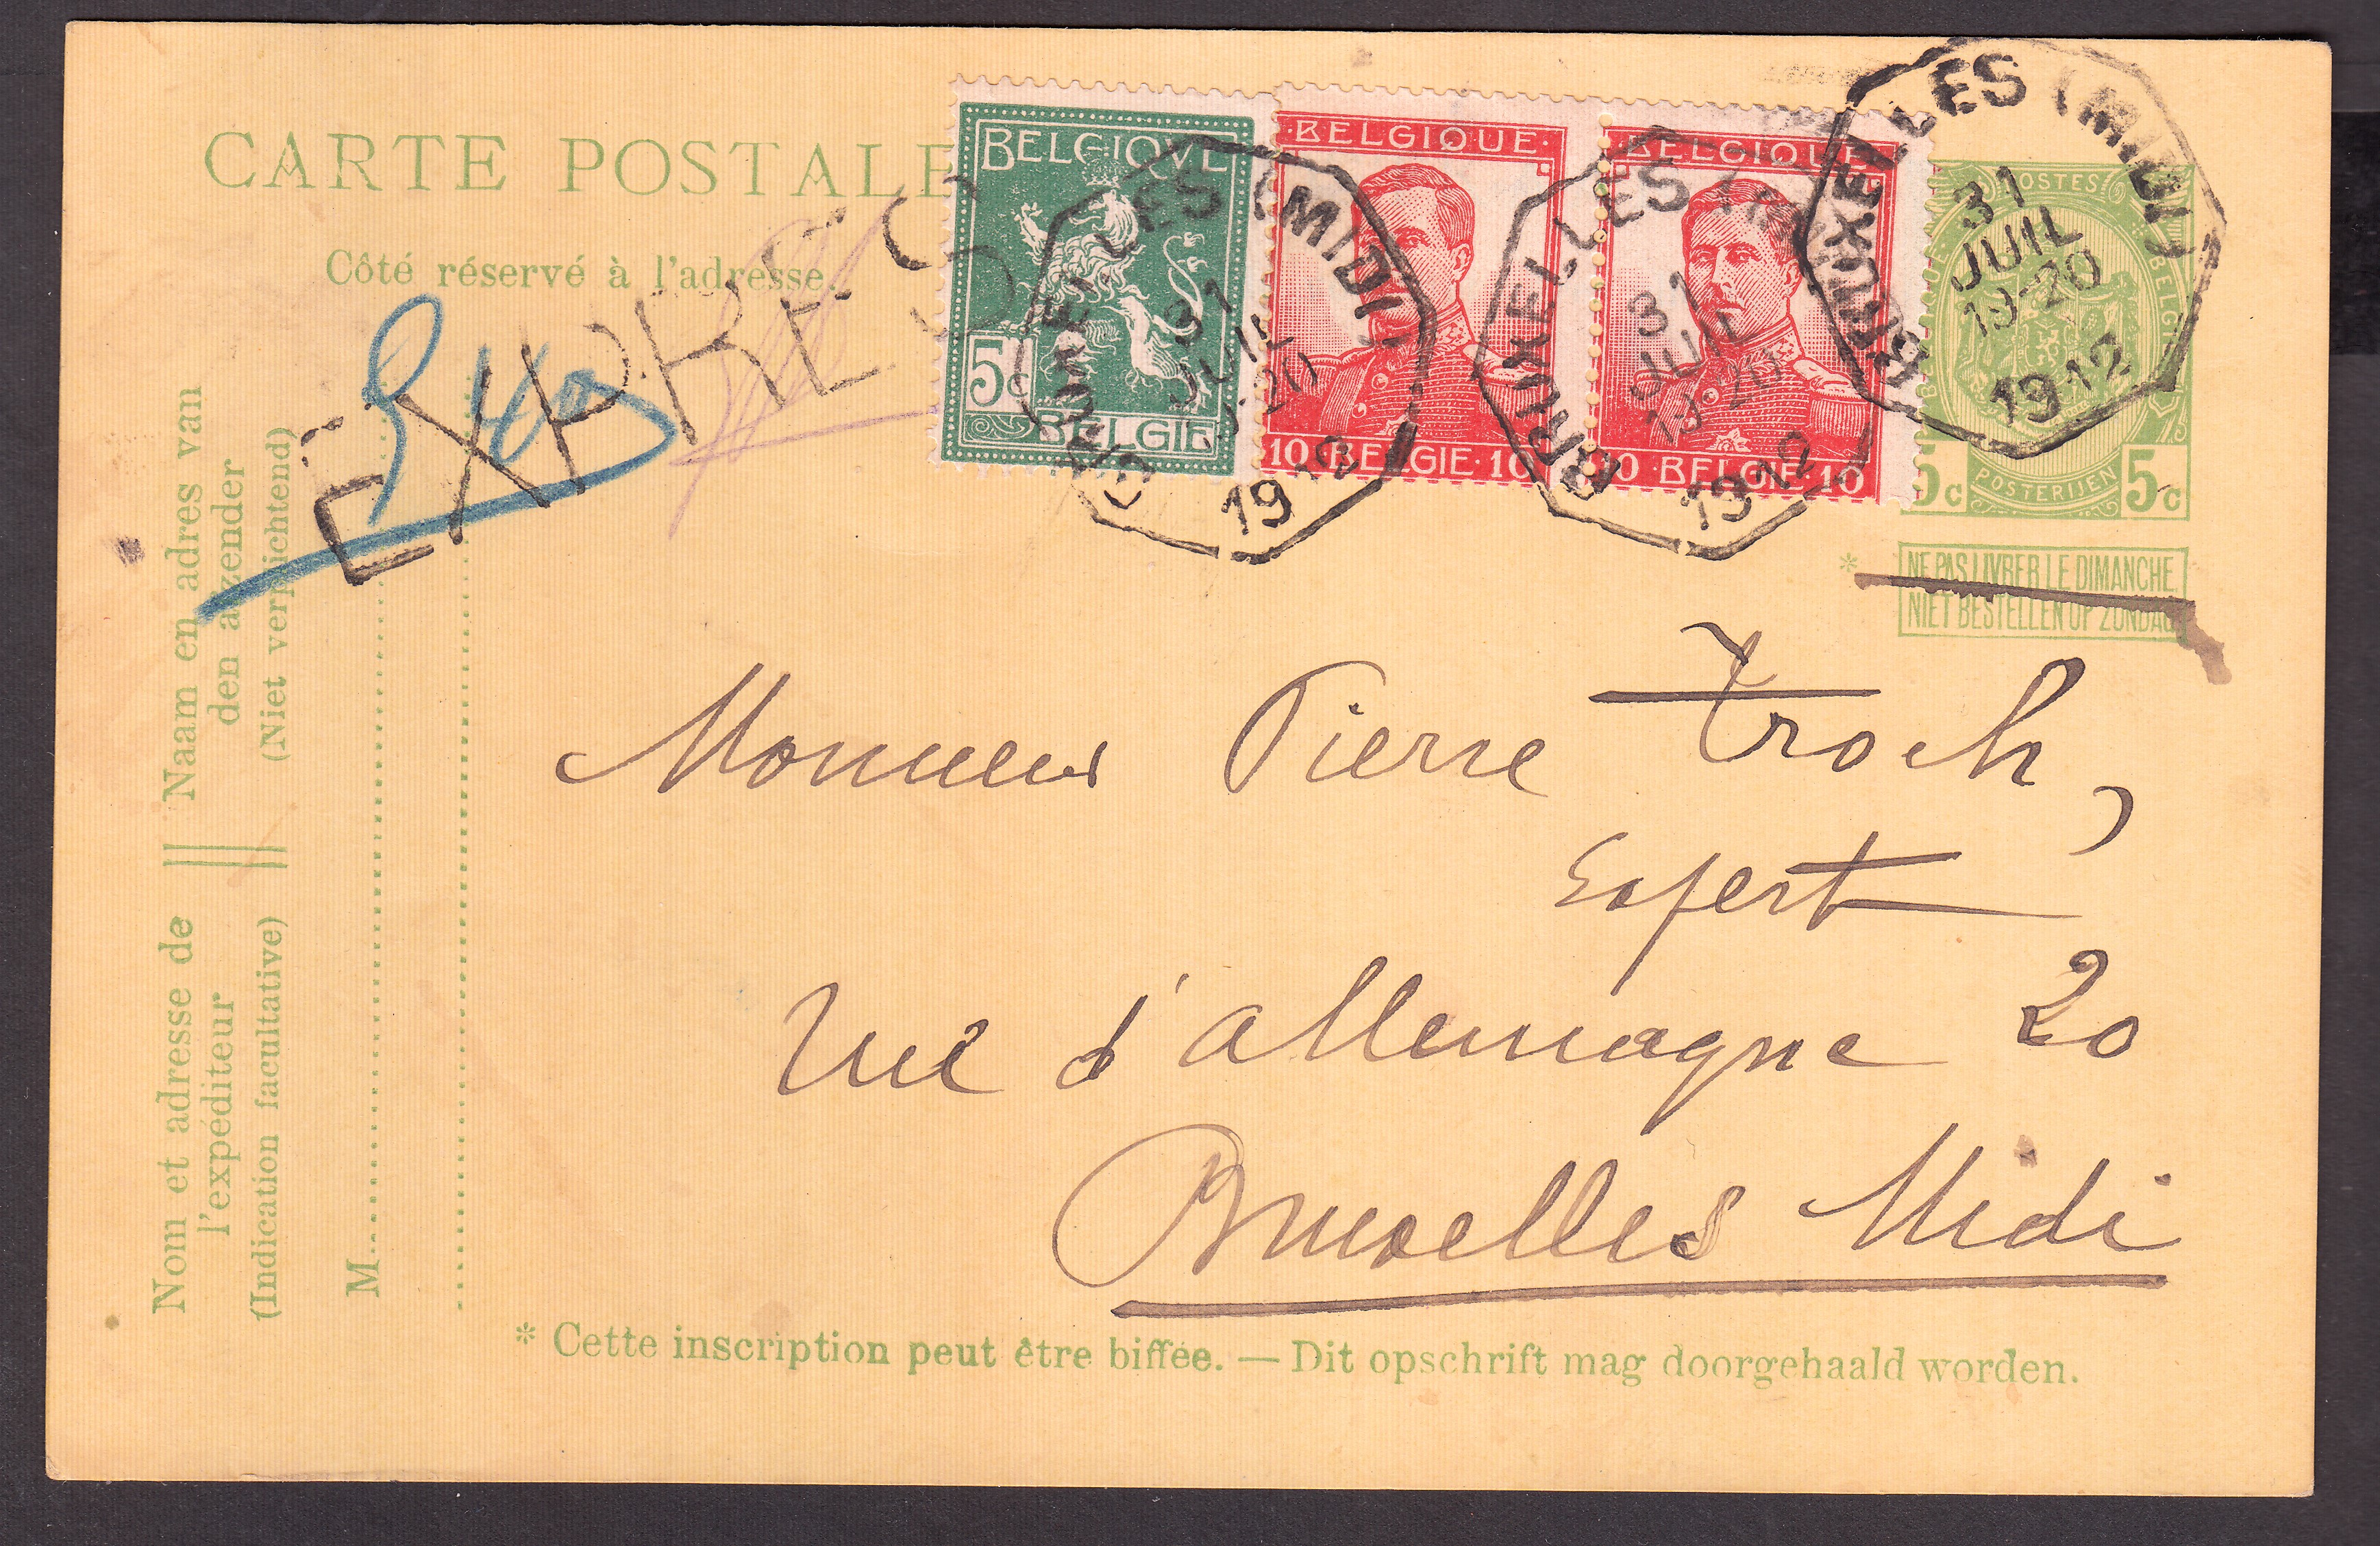 CARTE POSTALE
Côté réservé à l'adresse.
EXPRES
BELGIQVE
5c
BELGIE
BELGIQUE
10 BELGIE 10
BELGIQUE
10 BELGIE 10
POSTES
BELGIË
5c 5c
POSTERIJEN
BRUXELLES (MIDI)
31
JUIL
19-20
1912
BRUXELLES (MIDI)
31
JUIL
19-20
1912
BRUXELLES (MIDI)
31
JUIL
19-20
1912
* NE PAS LIVRER LE DIMANCHE.
NIET BESTELLEN OP ZONDAG.
Naam en adres van
den afzender
(Niet verplichtend)
Nom et adresse de
l'expéditeur
(Indication facultative)
M
Monsieur Pierre Troch,
Expert
Rue d'Allemagne 20
Bruxelles Midi
* Cette inscription peut être biffée. — Dit opschrift mag doorgehaald worden.